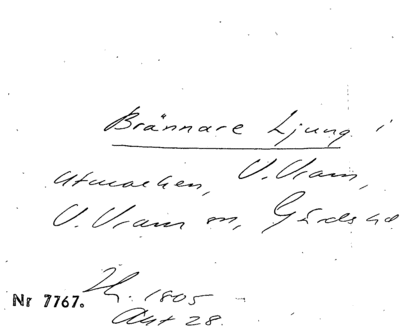 Brännare Ljung i
utmarken, V. Vram,
V. Vram sn, Gärds hd
Nr 7767. Lh. 1805
Akt 28.